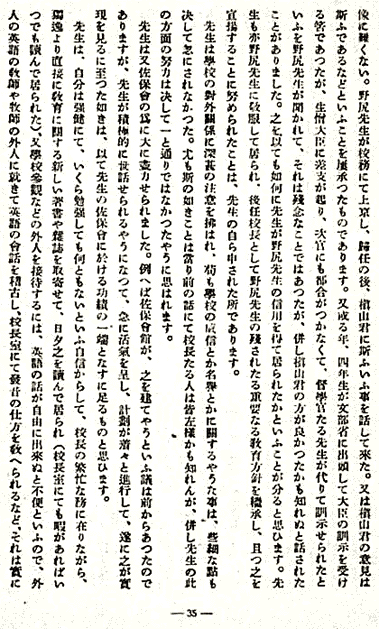 像に難くない。野尻先生が校務にて上京し、歸任の後、槇山君に斯ふいふ事を話して來た。又は槇山君の意見は
斯ふであるなどといふことを屢承つたものであります。又或る年、四年生が文部省に出頭して大臣の訓示を受け
る筈であつたが、生憎大臣に差支が起り、次官にも都合がつかなくて、督學官たる先生が代りて訓示せられたと
いふを野尻先生が聞かれて、それは殘念なことではあつたが、併し槇山君の方が良かつたかも知れぬと話された
ことがありました。之を以ても如何に先生が野尻先生の信用を得て居られたかといふことが分ると思ひます。先
生も亦野尻先生に敬服して居られ、後任校長として野尻先生の殘されたる重要なる敎育方針を繼承し、且つ之を
宣揚することに努められたことは、先生の自ら申された所であります。
先生は學校の對外關係に深甚の注意を拂はれ、苟も學校の威信とか名譽とかに關するやうな事は、些細な點も
決して忽にされなかつた。尤も斯の如きことは當り前の話にて校長たる人は皆左樣かも知れんが、併し先生の此
の方面の努力は決して一と通りではなかつたやうに思はれます。
先生は又佐保會の爲に大に盡力せられました。例へば佐保會館が、之を建てやうといふ議は前からあつたので
ありますが、先生が積極的に世話せられるやうになつて、急に活氣を呈し、計劃が着々と進行して、遂に之が實
現を見るに至つた如きは、以て先生の佐保會に於ける功績の一端となすに足るものと思ひます。
先生は、自分は强健にて、いくら勉强しても何ともないといふ自信からして、校長の繁忙な務に在りながら、
獨逸より直接に敎育に關する新しい著書や雜誌を取寄せて、日夕之を讀んで居られ(校長室にても暇があればい
つでも讀んで居られた)、又學校參觀などの外人を接待するには、英語の話が自由に出來ぬと不便といふので、外
人の英語の敎師や牧師の外人に就きて英語の會話を稽古し、校長室にて發音の仕方を敎へられるなど、それは實に
— 35 —